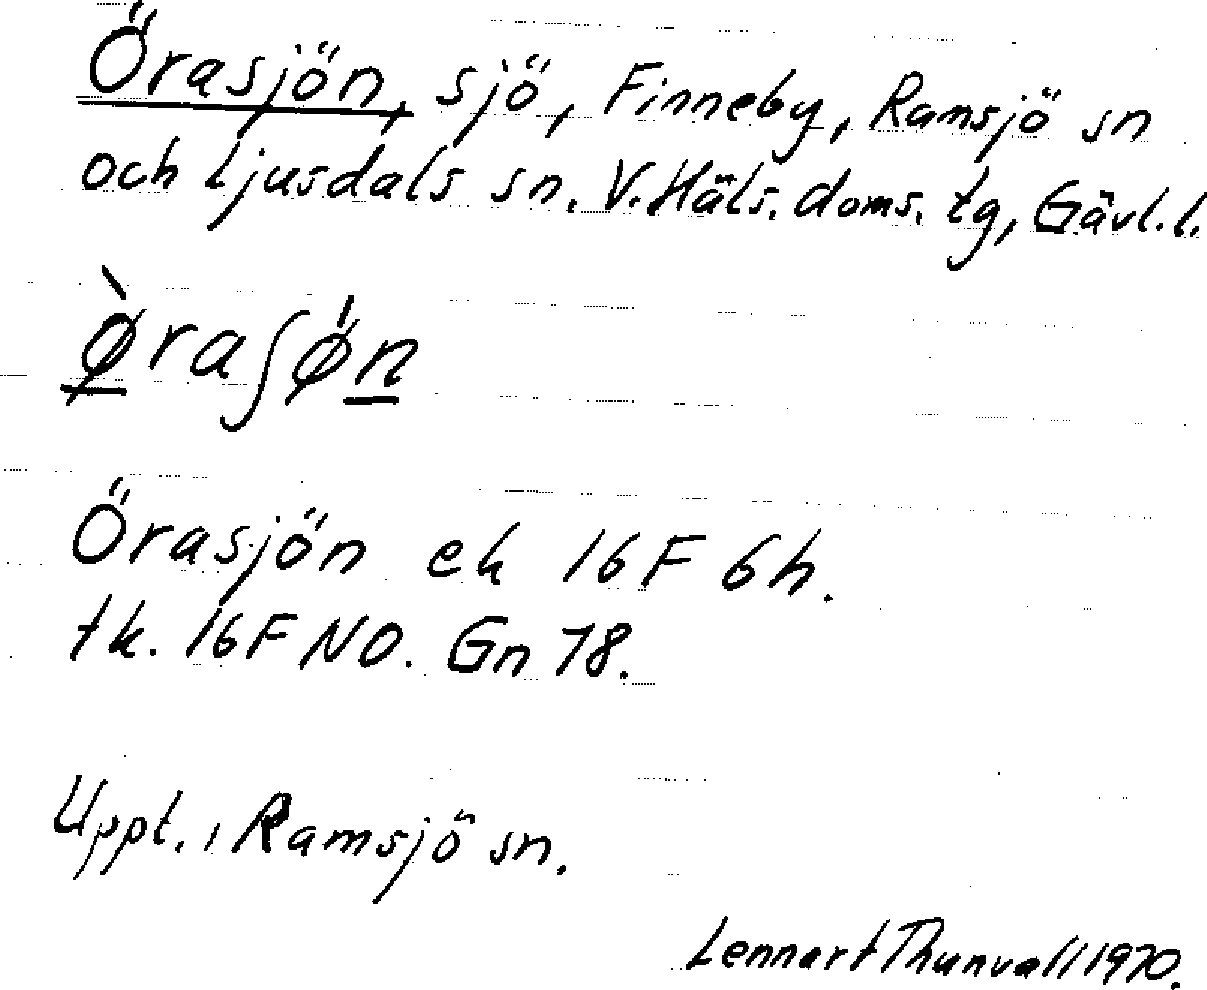 Örasjön, sjö, Finneby, Ramsjö sn
och Ljusdals sn. V. Häls. doms. tg, Gävl. l.
ø̱̀raʃǿṉ
Örasjön ek 16 F 6h.
tk. 16 F NO. Gn 78.
Uppt. i Ramsjö sn.
Lennart Thunvall 1970.